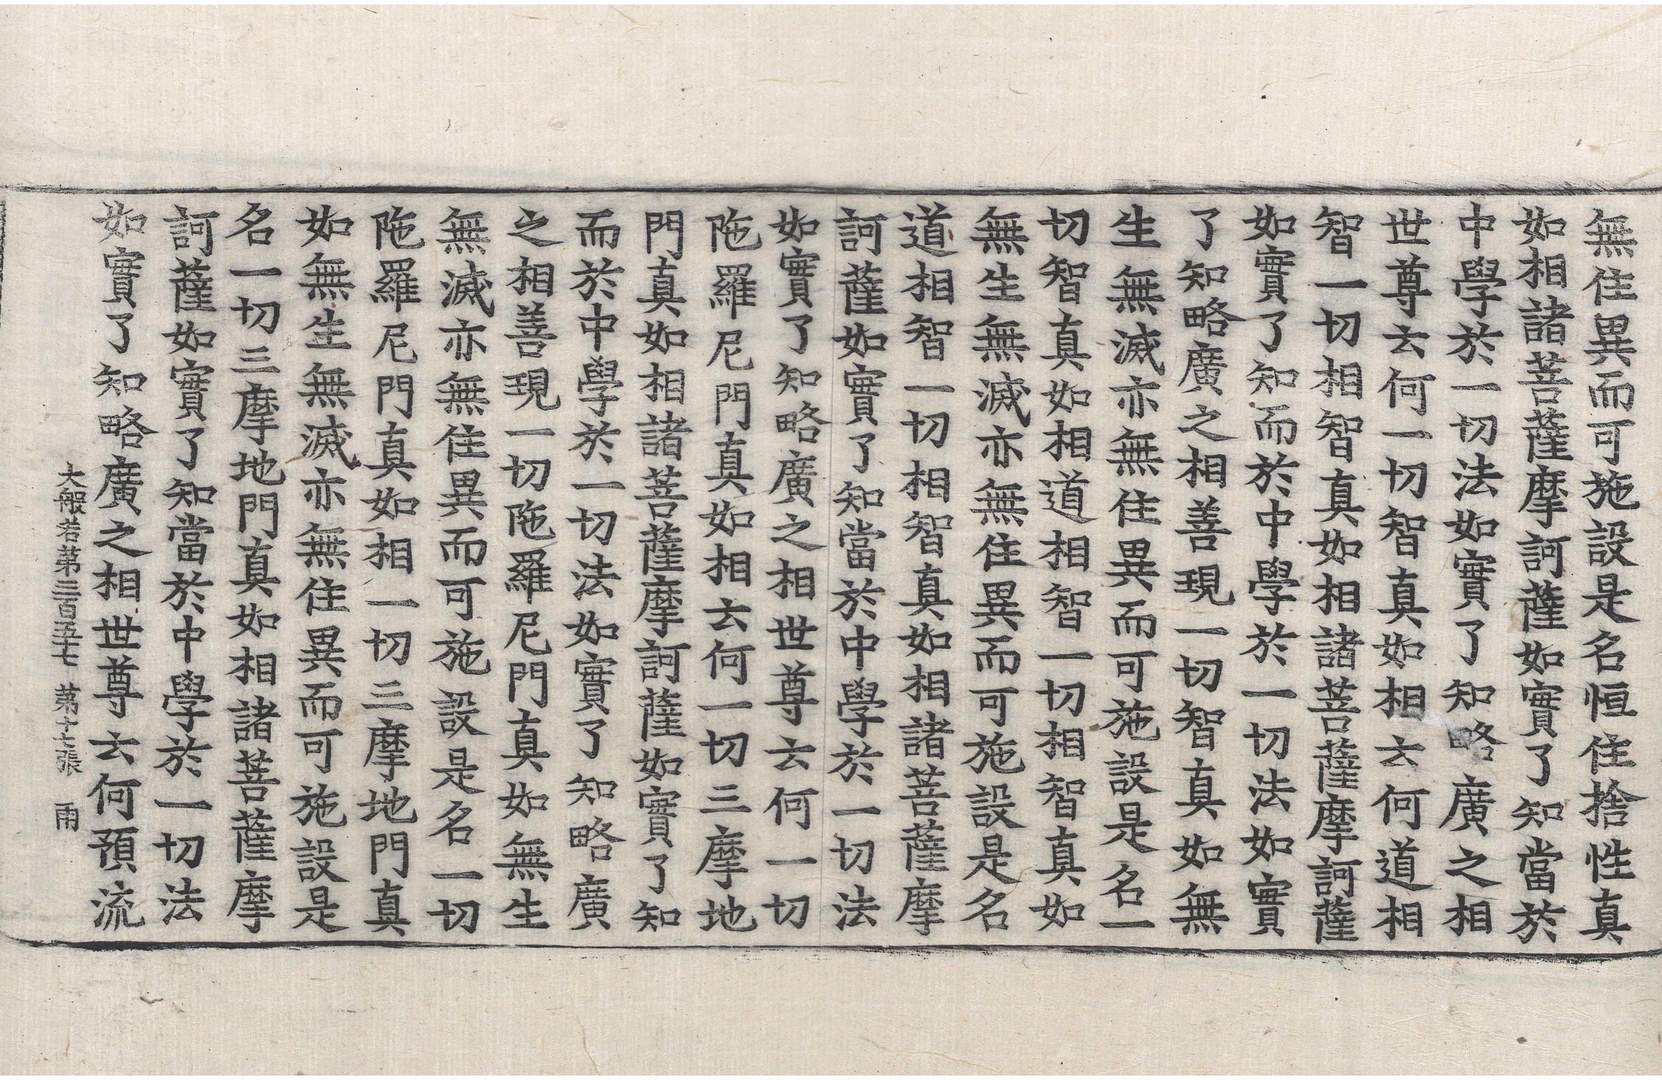 無住異而可施設是名恒住捨性真
如相諸菩薩摩訶薩如實了知當於
中學於一切法如實了知略廣之相
世尊云何一切智真如相云何道相
智一切相智真如相諸菩薩摩訶薩
如實了知而於中學於一切法如實
了知略廣之相善現一切智真如無
生無滅亦無住異而可施設是名一
切智真如相道相智一切相智真如
無生無滅亦無住異而可施設是名
道相智一切相智真如相諸菩薩摩
訶薩如實了知當於中學於一切法
如實了知略廣之相世尊云何一切
陁羅尼門真如相云何一切三摩地
門真如相諸菩薩摩訶薩如實了知
而於中學於一切法如實了知略廣
之相善現一切陁羅尼門真如無生
無滅亦無住異而可施設是名一切
陁羅尼門真如相一切三摩地門真
如無生無滅亦無住異而可施設是
名一切三摩地門真如相諸菩薩摩
訶薩如實了知當於中學於一切法
如實了知略廣之相世尊云何預流
大般若第三百五十七 第十七張 雨